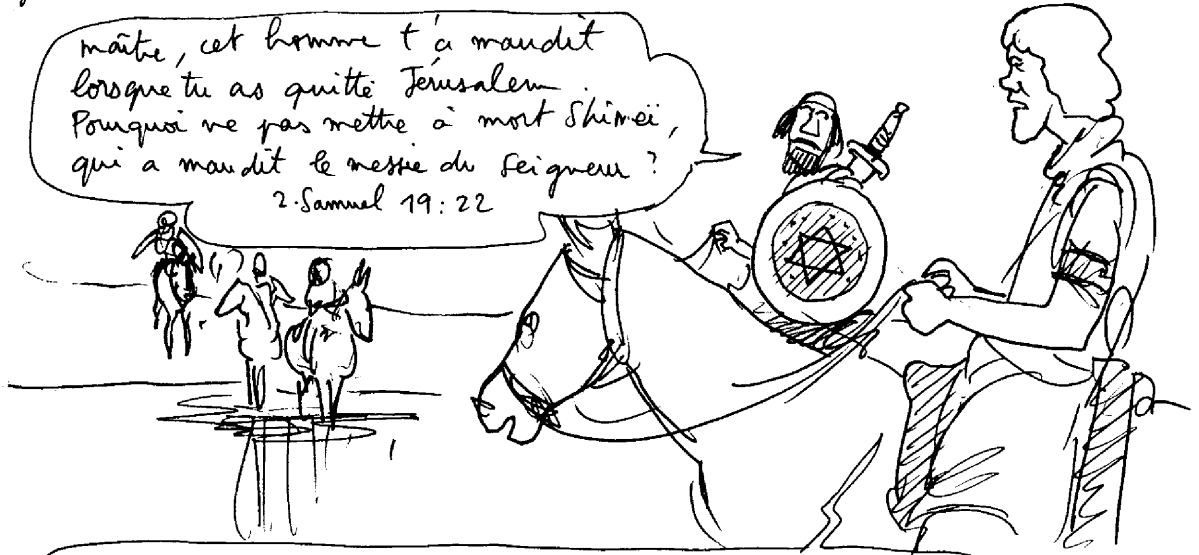 maître, cet homme t'a maudit
lorsque tu as quitté Jérusalem.
Pourquoi ne pas mettre à mort Shimeï,
qui a maudit le messie du Seigneur ?
2. Samuel 19:22